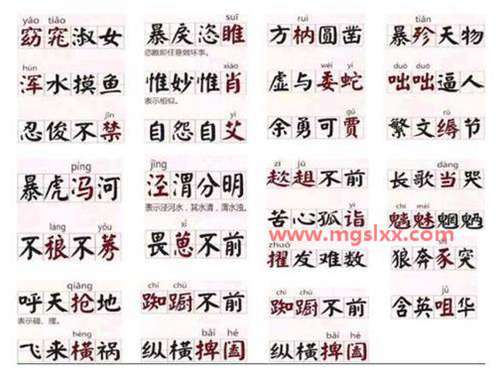 yǎo tiǎo
窈窕淑女
suī
暴戾恣睢
恣睢即任意做坏事。
ruì
方枘圆凿
tiǎn
暴殄天物
hún
浑水摸鱼
xiào
惟妙惟肖
表示相似。
wēi yí
虚与委蛇
duō duō
咄咄逼人
jīn
忍俊不禁
yì
自怨自艾
gǔ
余勇可贾
rù
繁文缛节
píng
暴虎冯河
jīng
泾渭分明
表示泾河水，其水清，渭水浊。
zī jū
趑趄不前
dàng
长歌当哭
láng yǒu
不稂不莠
xǐ
畏葸不前
yì
苦心孤诣
chī mèi
魑魅魍魉
www.mgslxx.com
zhuó
擢发难数
shǐ
狼奔豕突
qiāng
呼天抢地
表示碰、撞。
chí chú
踟蹰不前
chí chú
踟蹰不前
jǔ
含英咀华
hèng
飞来横祸
bǎi hé
纵横捭阖
bǎi hé
纵横捭阖